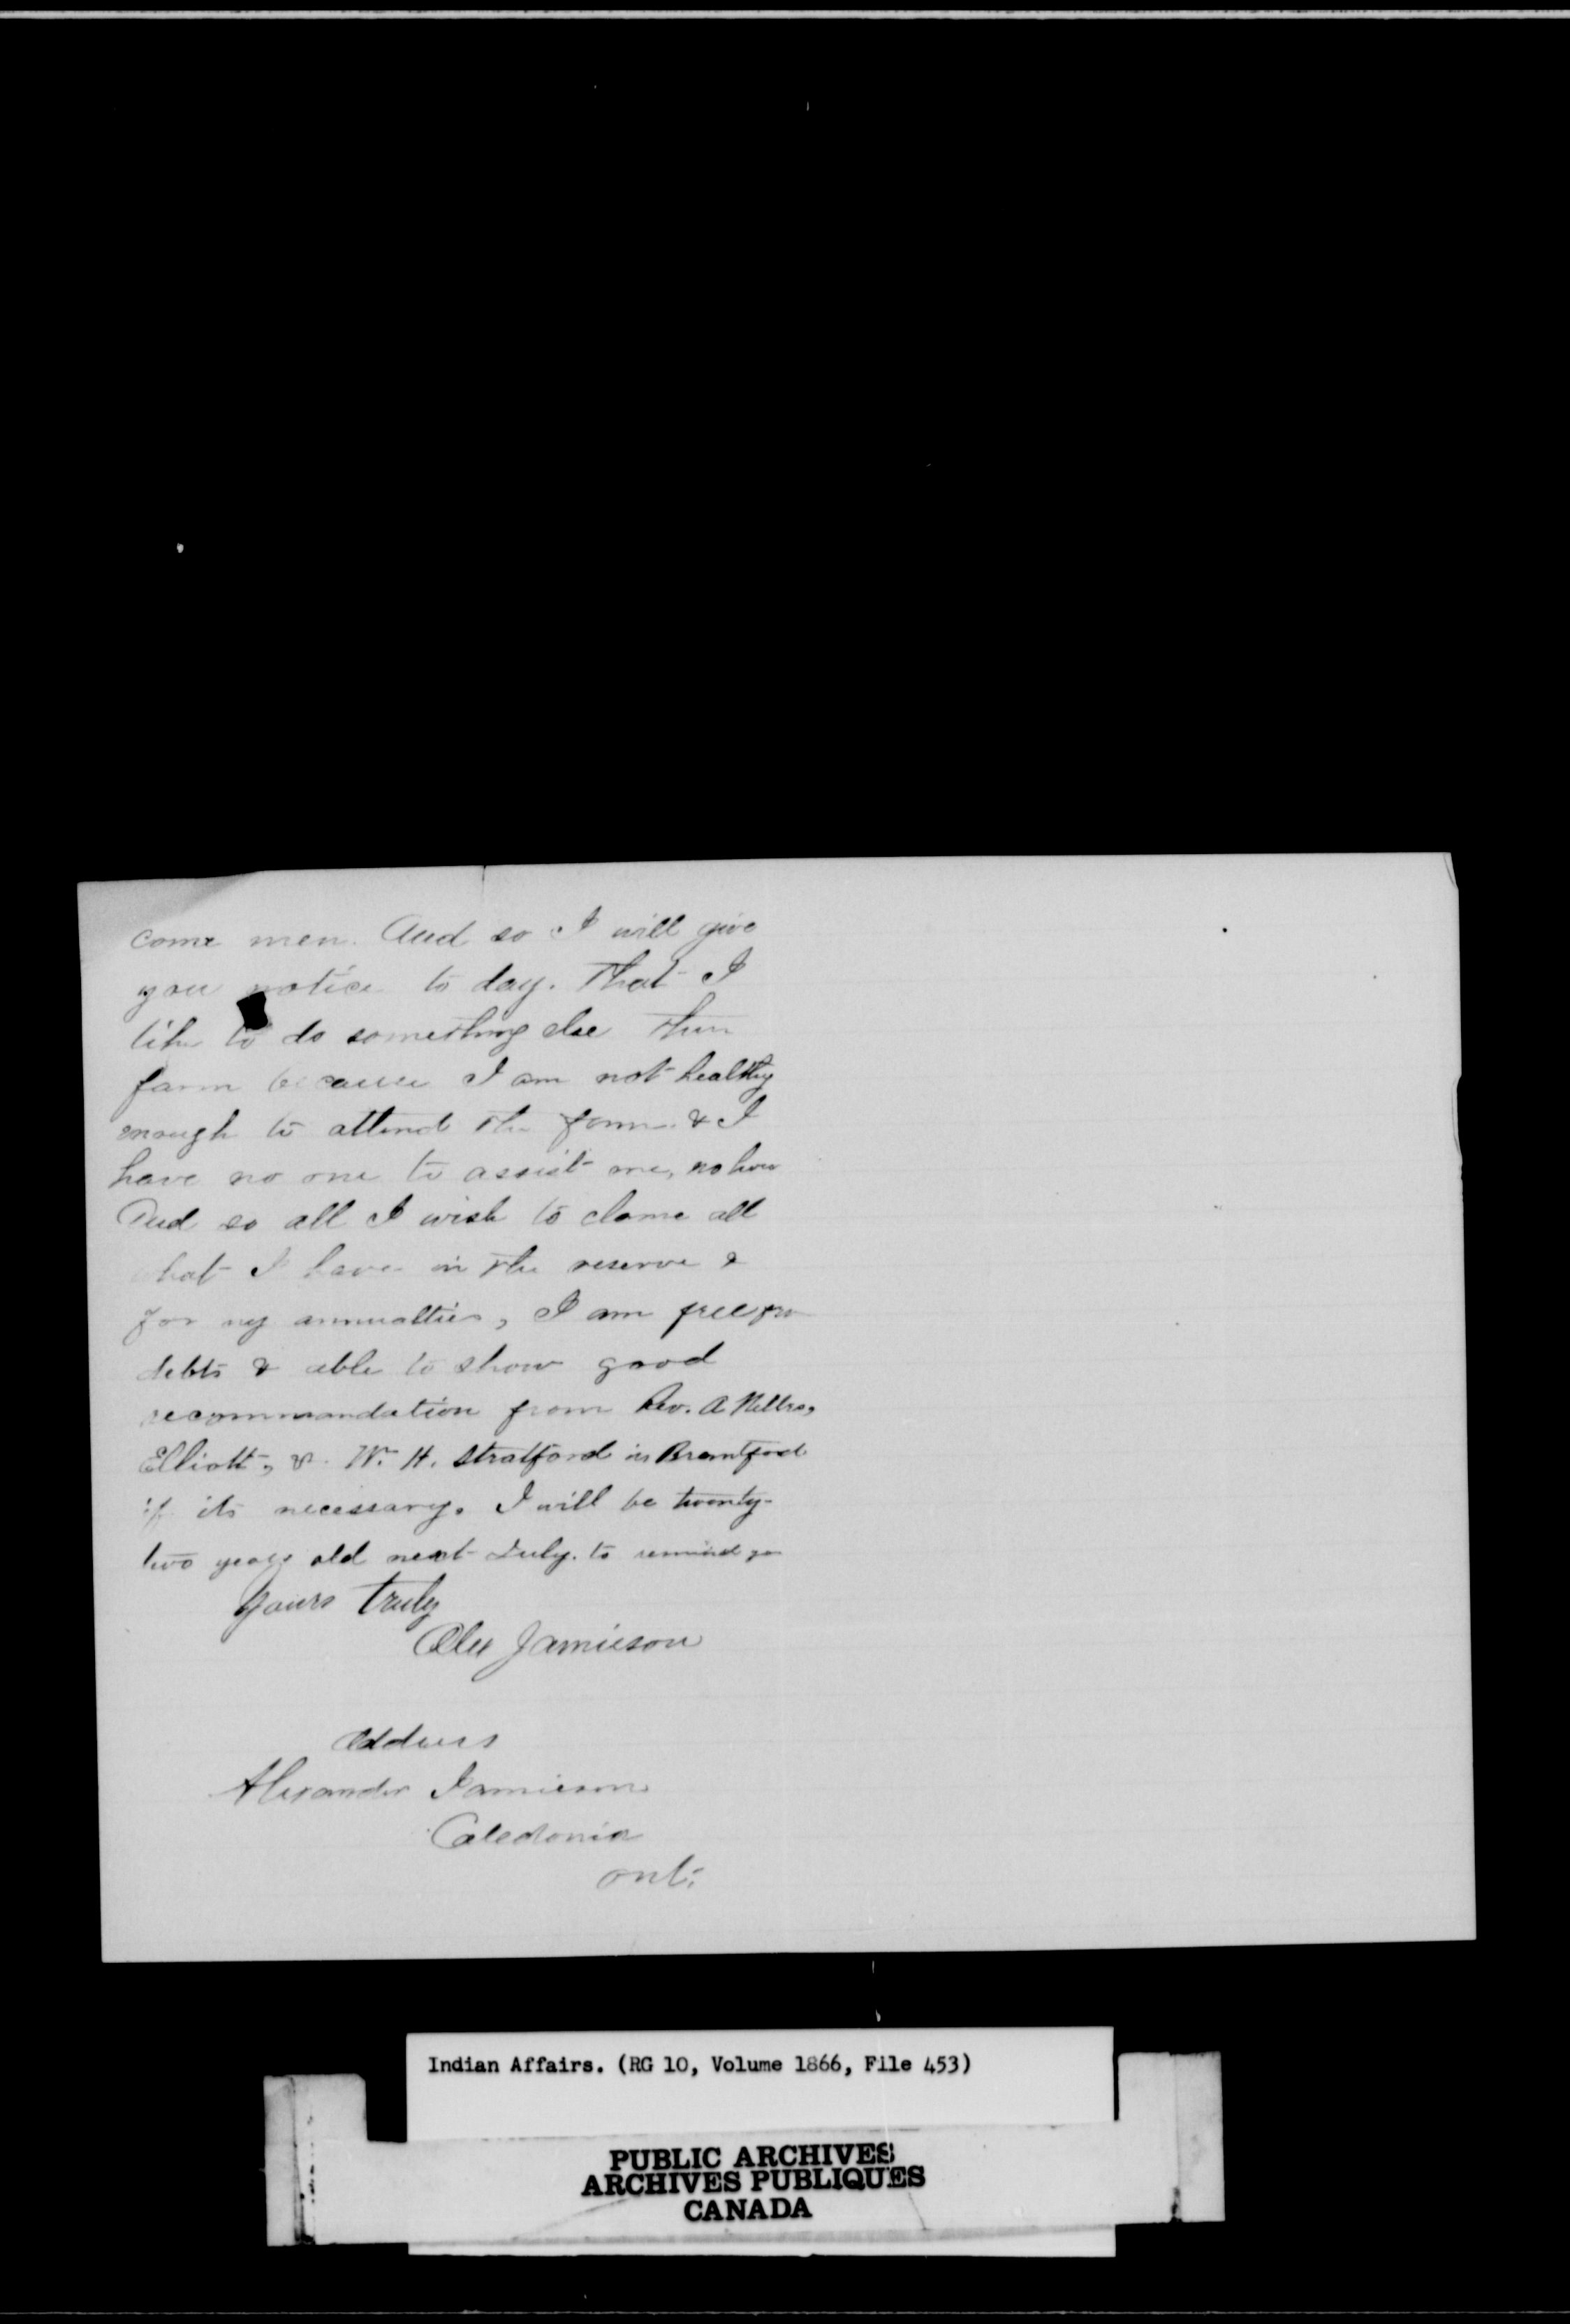 come men. And so I will give
you notice to day. That I
like to do something else then
farm because I am not healthy
enough to attend the farm. & I
have no one to assist me, no how
And so all I wish to clame all
what I have in the reserve &
for my annualties, I am free from
debts & able to show good
recommandation from Rev. A Nelles,
Elliott, & Wm H. Stratford in Brantford
if its necessary. I will be twenty-
two years old next July. to remind you
Yours truly
Alex Jamieson
Address
Alexander Jamieson
Caledonia
Ont:
Indian Affairs. (RG 10, Volume 1866, File 453)
PUBLIC ARCHIVES
ARCHIVES PUBLIQUES
CANADA